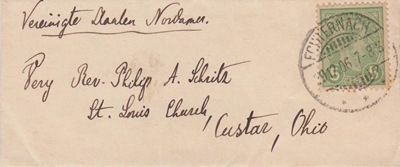 Vereinigte Staaten Nordamer.
Very Rev. Philip A. Schritz
St. Louis Church,
Custar, Ohio
ECHTERNACH